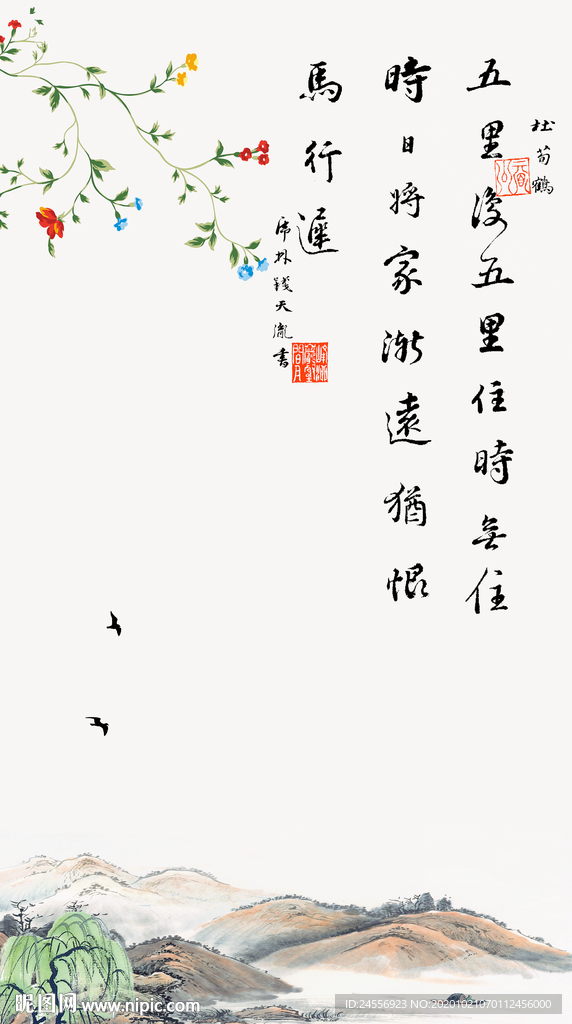 杜荀鶴
五里復五里住時無住
時日將家漸遠猶恨
馬行遲
虎林錢天胤書
昵图网 www.nipic.com
ID:24556923 NO:20201021070112456000